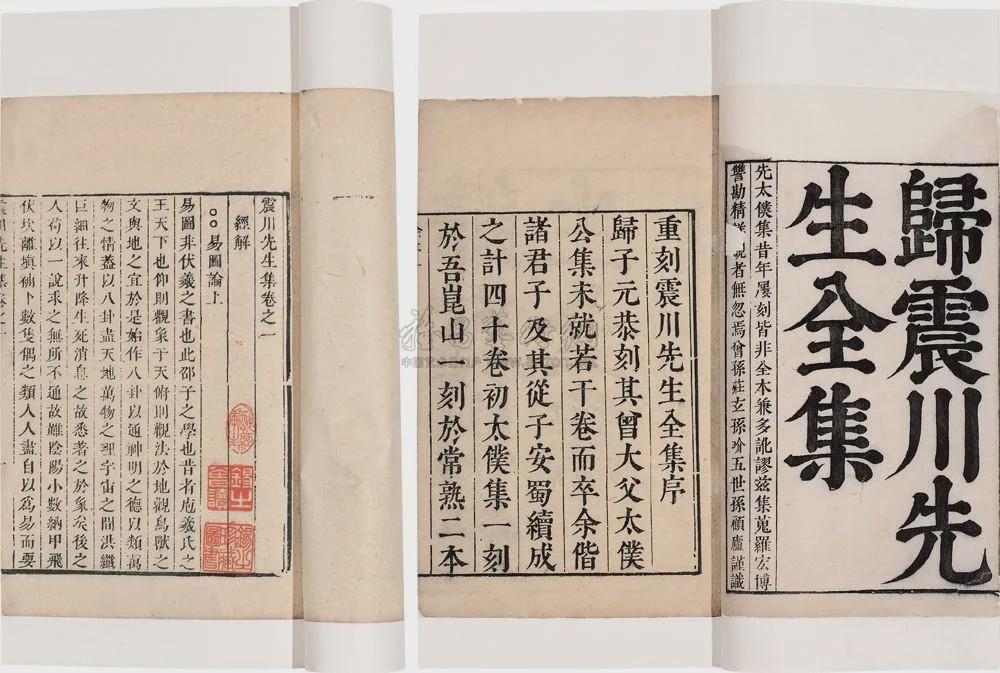 歸震川先
生全集
先太僕集昔年屢刻皆非全本兼多訛謬茲集蒐羅宏博
讐勘精者無忽焉曾孫莊玄孫玠五世孫顧廬謹識
重刻震川先生全集序
歸子元恭刻其曾大父太僕
公集未就若干卷而卒余偕
諸君子及其從子安蜀續成
之計四十卷初太僕集一刻
於吾崑山一刻於常熟二本
震川先生集卷之一
經解
○○易圖論上
易圖非伏羲之書也此邵子之學也昔者庖羲氏之
王天下也仰則觀象于天俯則觀法於地觀鳥獸之
文與地之宜於是始作八卦以通神明之德以類萬
物之情蓋以八卦盡天地萬物之理宇宙之間洪纖
巨細往來升降生死消息之故悉著之於象矣後之
人苟以一說求之無所不通故雖陰陽小數納甲飛
伏坎離塡補卜數隻偶之類人人盡自以爲易而要
震川先生集卷之一